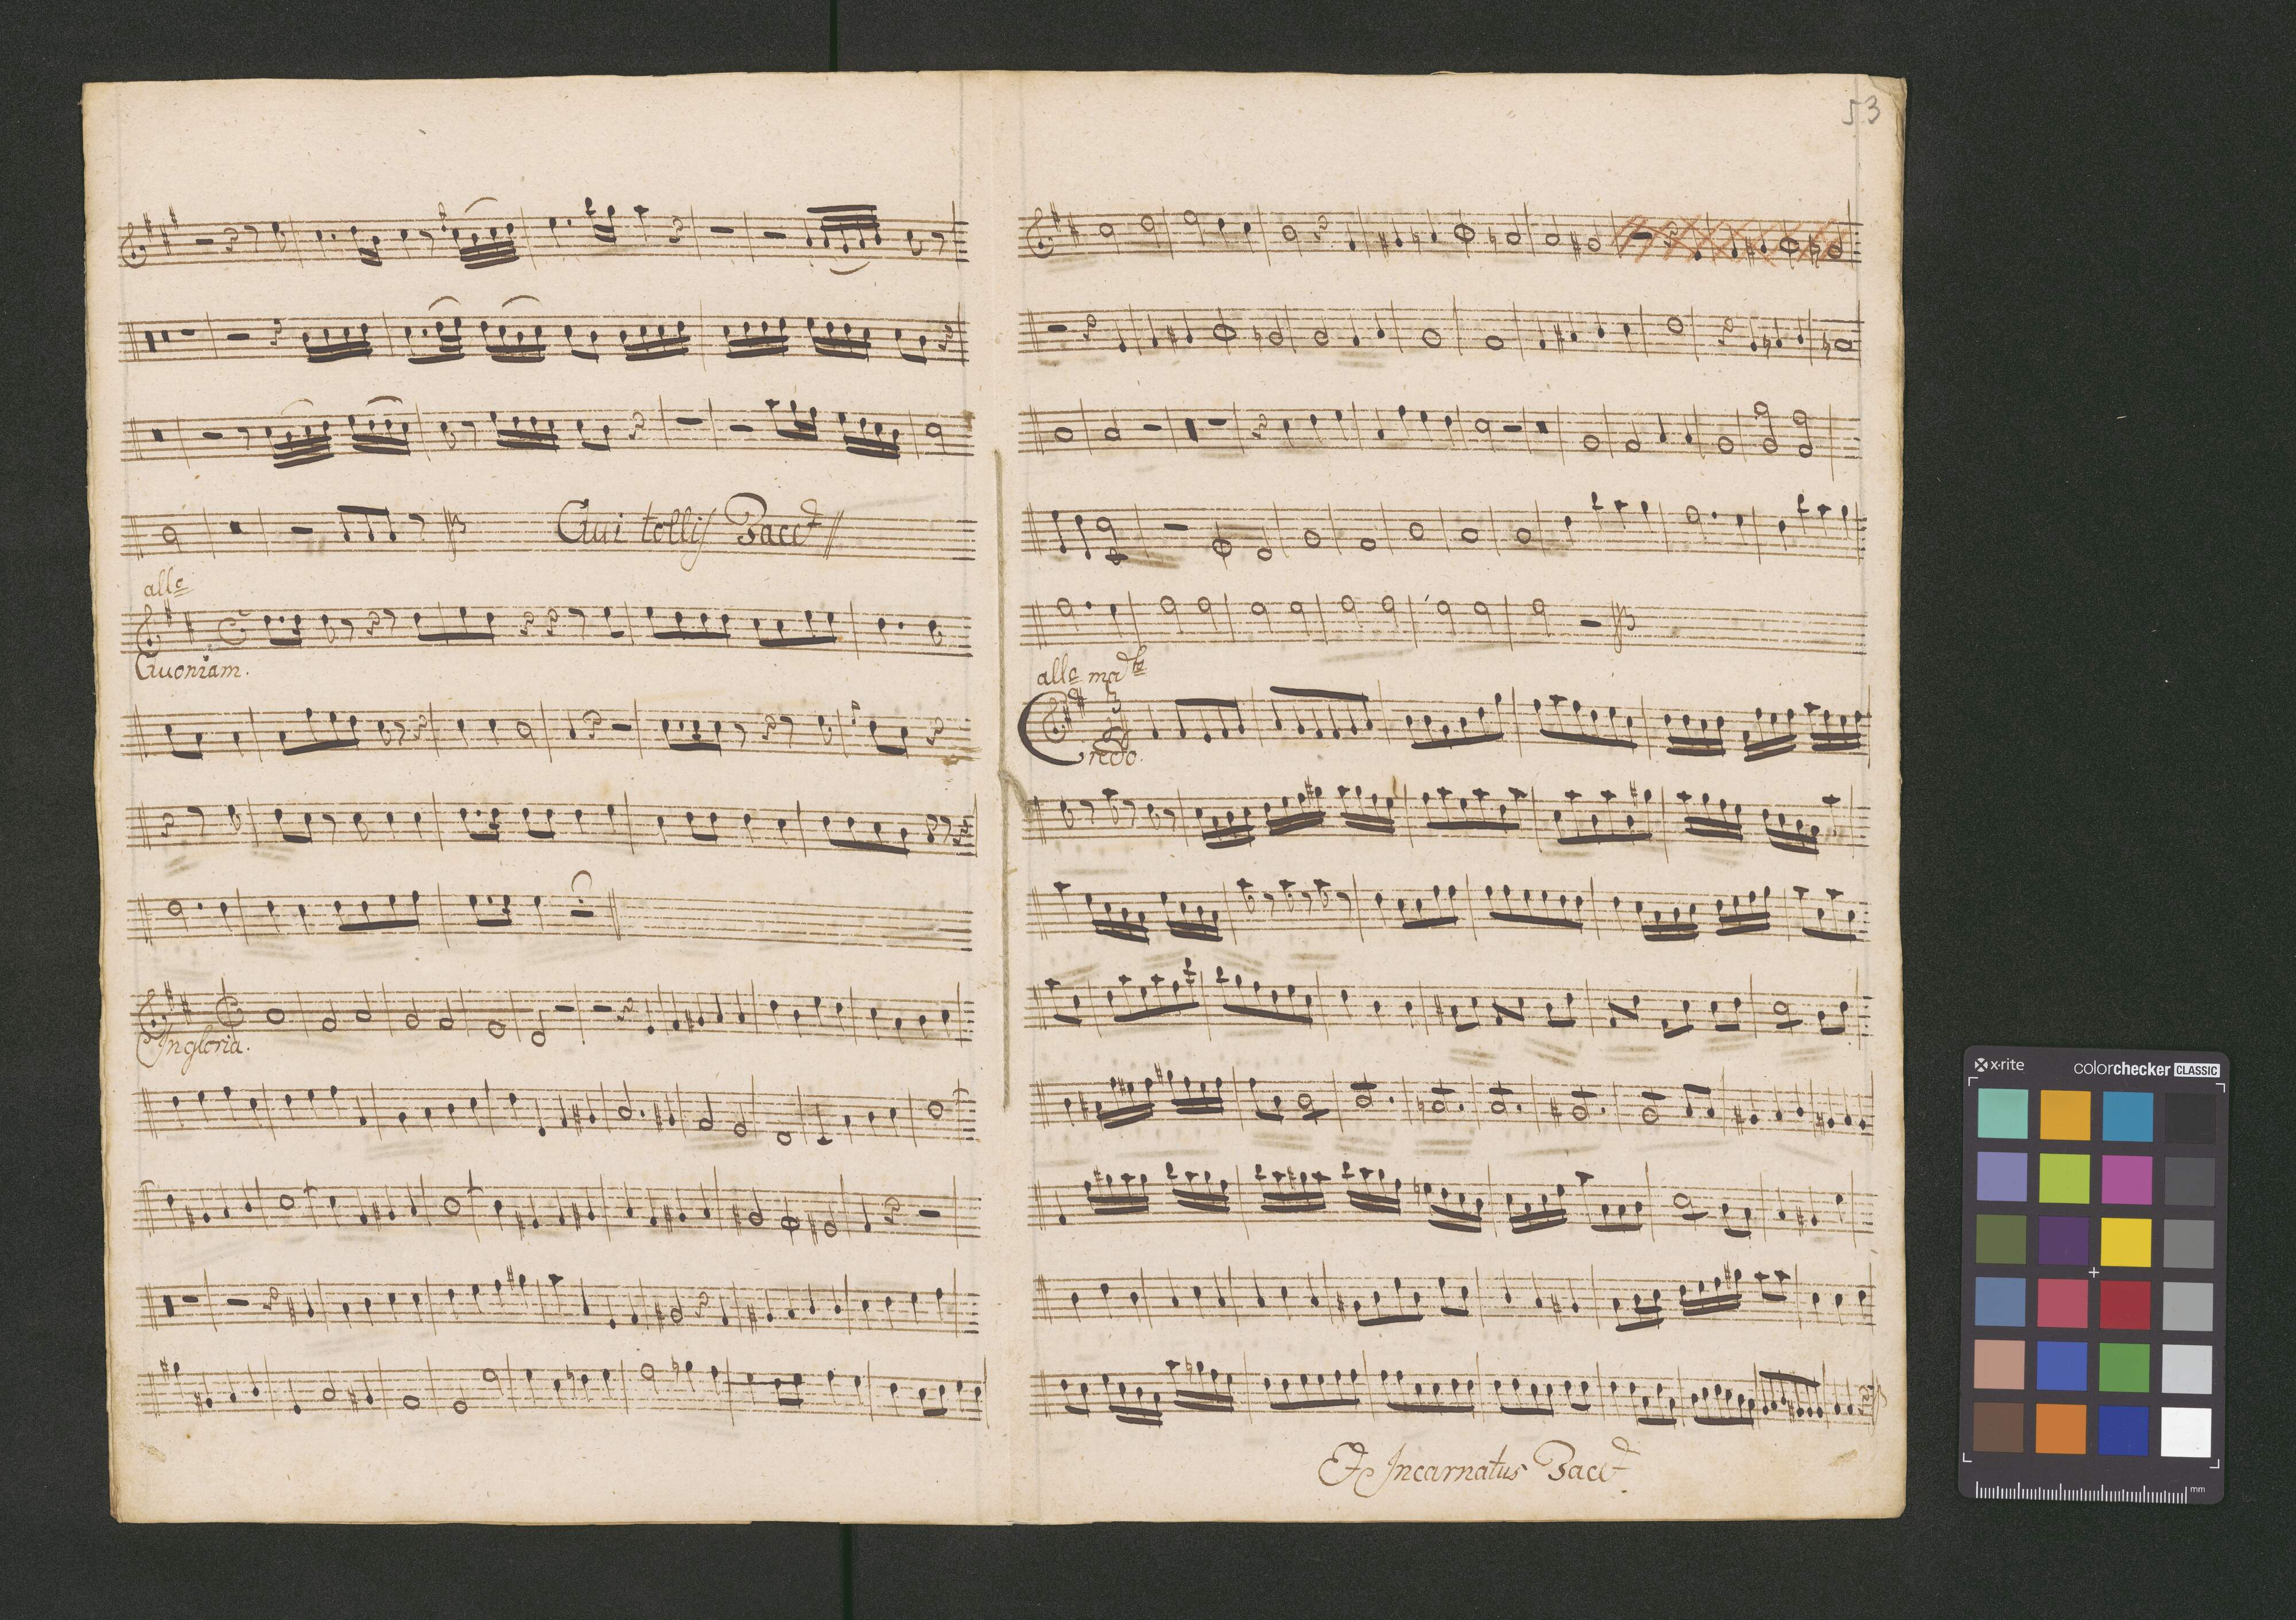 Qui tollis Tacet
allo
Quoniam.
In gloria.
53
allo madto
3
Credo.
Et Incarnatus Tacet
x·rite
colorchecker CLASSIC
mm